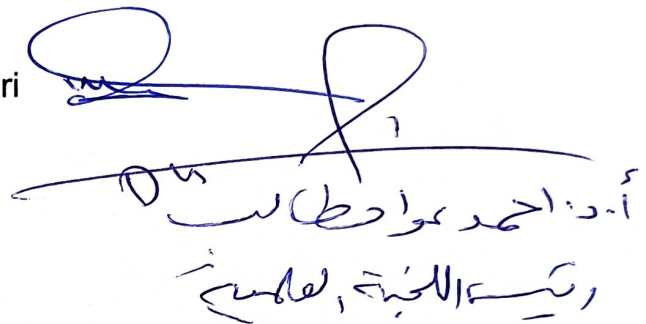 ri
أ.د. احمد عواد طالب
رئيس اللجنة العلمية